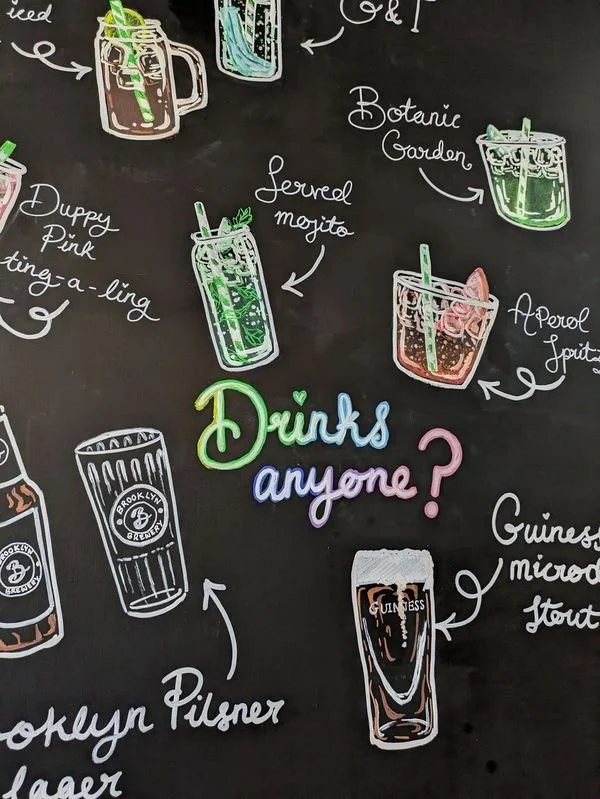 iced
G&T
Botanic
Garden
Served
mojito
Duppy
Pink
ting-a-ling
Aperol
Spritz
Drinks
anyone?
BROOKLYN
B
BREWERY
BROOKLYN
B
BREWERY
Guiness
microd
Stout
GUINNESS
ooklyn Pilsner
lager